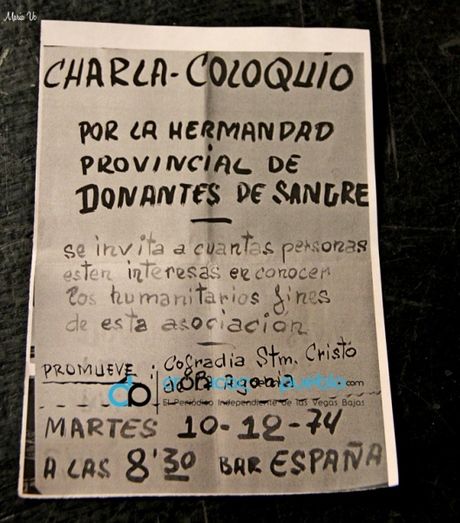 María Vo
CHARLA-COLOQUIO
POR LA HERMANDAD
PROVINCIAL DE
DONANTES DE SANGRE
se invita a cuantas personas
esten interesas en conocer
los humanitarios fines
de esta asociación
PROMUEVE : Cofradia Stm. Cristo
Agonia .com
El Periódico Independiente de las Vegas Bajas
MARTES 10-12-74
A LAS 8'30 BAR ESPAÑA